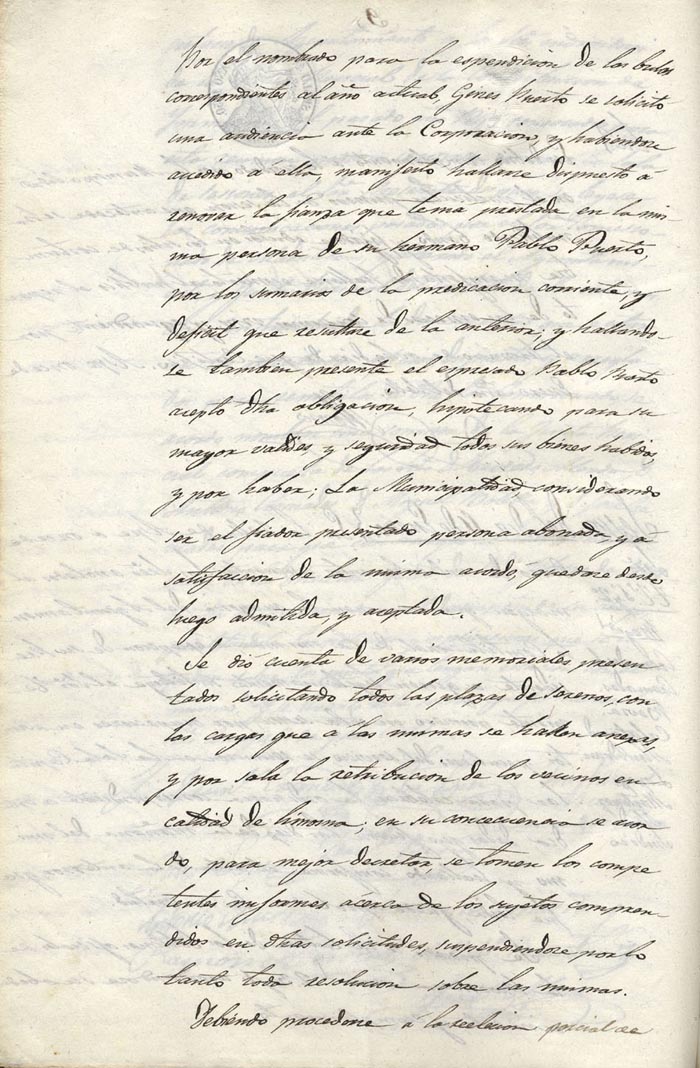 Por el nombrado para la espendicion de las bulas
correspondientes al año actual, Gines Puerto se solicitó
una audiencia ante la Corporacion, y habiendose
accedido á ella, manifestó hallarse dispuesto á
renovar la fianza que tema prestada en la mis-
ma persona de su hermano Pablo Puerto,
por los sumarios de la predicacion corriente, y
deficit que resultare de la anterior; y hallando-
se tambien presente el espresado Pablo Puerto
acepto dha obligacion, hipotecando para su
mayor validés y seguridad todos sus bienes habidos,
y por haber; La Municipalidad, considerando
ser el fiador presentado persona abonada, y á
satisfaccion de la misma acordó, quedase desde
luego admitida, y aceptada.
Se dió cuenta de varios memoriales presen
tados solicitando todos las plazas de serenos, con
las cargas que á las mismas se hallen anexas,
y por sola la retribucion de los vecinos en
calidad de limosna; en su concecuencia se acor
dó, para mejor decretar, se tomen los compe
tentes informes ácerca de los sujetos compren-
didos en dhas solicitudes, suspendiendose por lo
tanto toda resolucion sobre las mismas.
Debiendo procederse á la reelecion parcial de